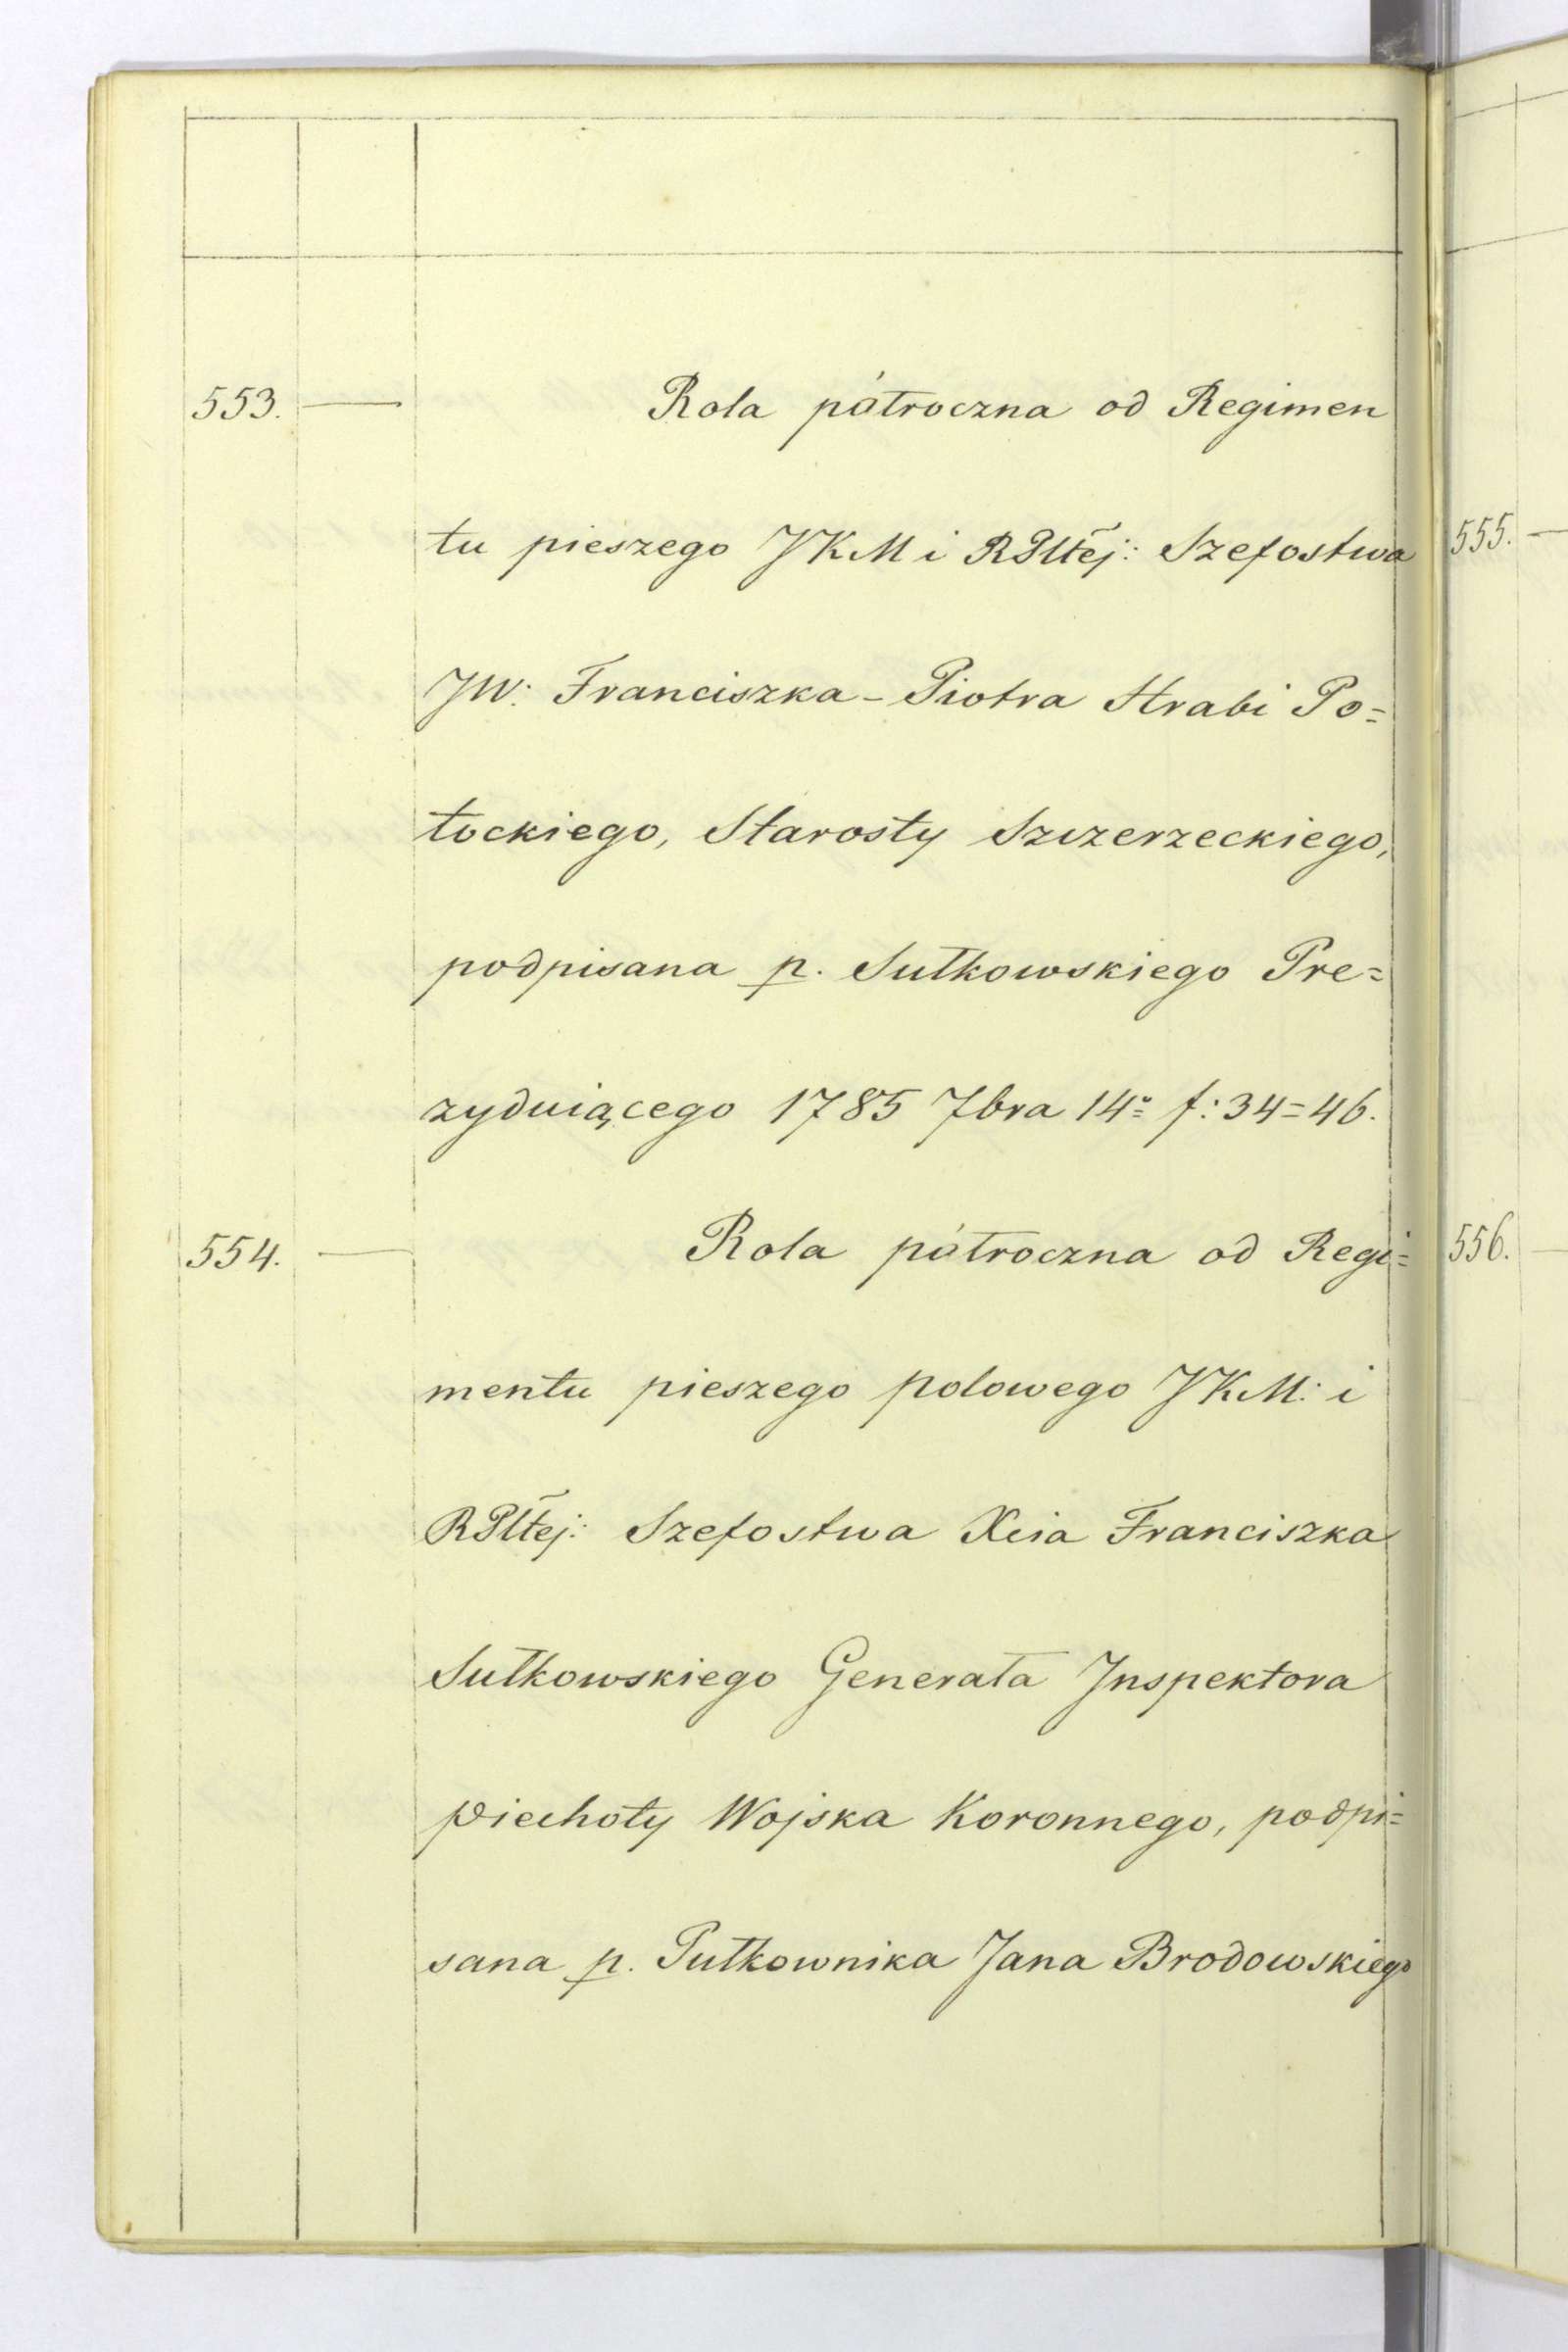 553. — Rola półroczna od Regimen
tu pieszego JKM i RPltej: Szefostwa
JW: Franciszka - Piotra Hrabi Po=
tockiego, Starosty Szczerzeckiego,
podpisana p. Sułkowskiego Pre=
zyduiącego 1785 7bra 14º f: 34=46.
554. — Rola półroczna od Regi=
mentu pieszego polowego JKM: i
RPltej: Szefostwa Xcia Franciszka
Sułkowskiego Generała Inspektora
Piechoty Wojska Koronnego, podpi=
sana p. Pułkownika Jana Brodowskiego
555. —
556. —